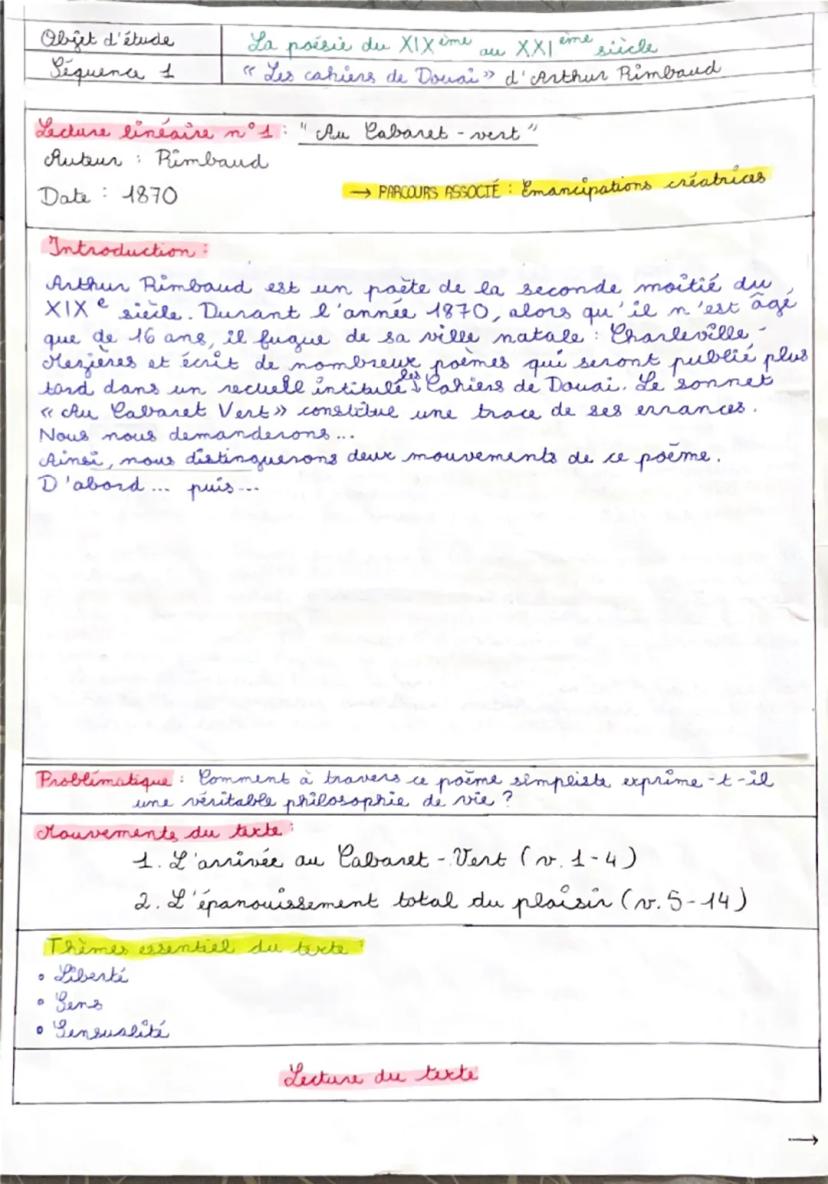 Objet d'étude
La poésie du XIXème au XXIème siècle
Séquence 1
« Les cahiers de Douai » d'Arthur Rimbaud
Lecture linéaire n°1 : "Au Cabaret-vert"
Auteur : Rimbaud
Date : 1870
→ PARCOURS ASSOCIÉ : Emancipations créatrices
Introduction :
Arthur Rimbaud est un poète de la seconde moitié du
XIXe siècle. Durant l'année 1870, alors qu'il n'est âgé
que de 16 ans, il fugue de sa ville natale : Charleville-
Mezières et écrit de nombreux poèmes qui seront publié plus
tard dans un recueil intitulé les Cahiers de Douai. Le sonnet
« Au Cabaret Vert » constitue une trace de ses errances.
Nous nous demanderons...
Ainsi, nous distinguerons deux mouvements de ce poème.
D'abord... puis...
Problématique : Comment à travers ce poème simpliste exprime-t-il
une véritable philosophie de vie ?
Mouvements du texte :
1. L'arrivée au Cabaret-Vert (v. 1-4)
2. L'épanouissement total du plaisir (v. 5-14)
Thèmes essentiel du texte :
• Liberté
• Sens
• Sensualité
Lecture du texte
→